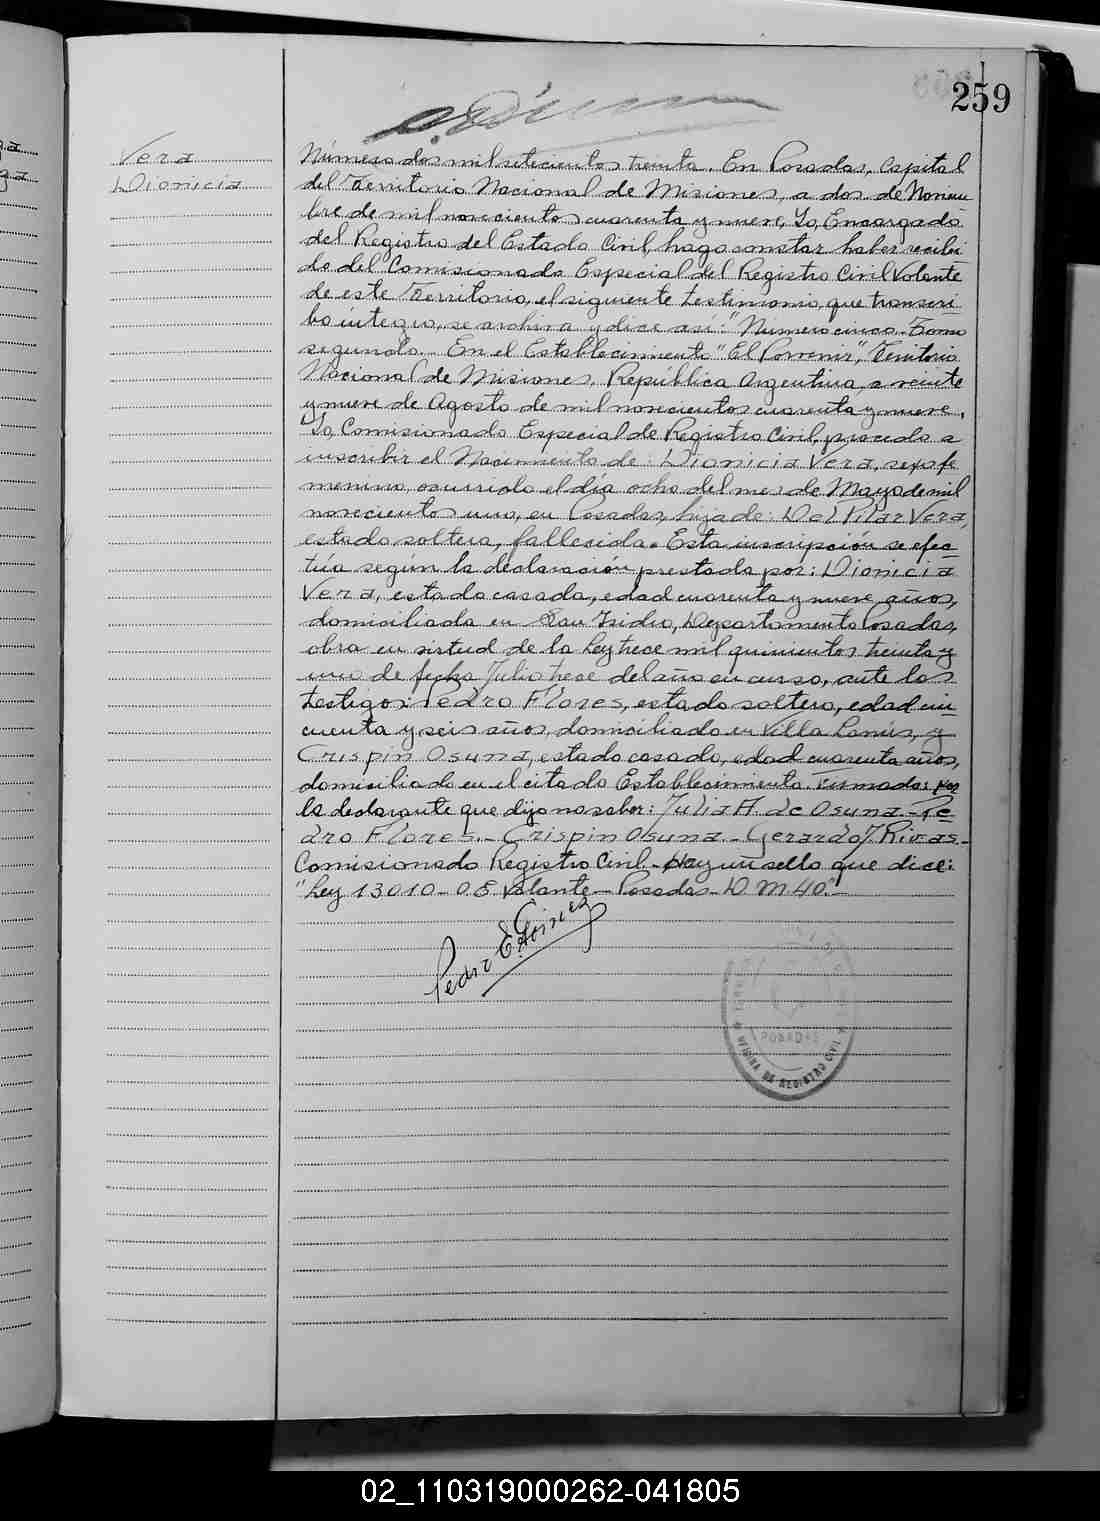 259
Vera
Dionicia
Número dos mil setecientos treinta. En Posadas, Capital
del Territorio Nacional de Misiones, a dos de Noviem
bre de mil novecientos cuarenta y nueve, Yo, Encargado
del Registro del Estado Civil, hago constar haber recibi
do del Comisionado Especial del Registro Civil Volante
de este Territorio, el siguiente testimonio, que transcri-
bo íntegro, se archiva y dice así: "Número cinco. Tomo
segundo. En el Establecimiento "El Porvenir", Territorio
Nacional de Misiones, República Argentina, a veinte
y nueve de Agosto de mil novecientos cuarenta y nueve.
Yo, Comisionado Especial de Registro Civil, procedo a
inscribir el Nacimiento de: Dionicia Vera, sexo fe
menino, ocurrido el día ocho del mes de Mayo de mil
novecientos uno, en Posadas, hija de: Del Pilar Vera,
estado soltera, fallecida. Esta inscripción se efec-
túa según la declaración prestada por: Dionicia
Vera, estado casada, edad cuarenta y nueve años,
domiciliada en San Isidro, Departamento Posadas,
obra en virtud de la Ley trece mil quinientos treinta y
uno de fecha Julio trece del año en curso, ante los
testigos: Pedro Flores, estado soltero, edad cin
cuenta y seis años, domiciliado en Villa Lanús, y
Crispin Osuna, estado casado, edad cuarenta años,
domiciliado en el citado Establecimiento. Firmado: por
la declarante que dijo no saber: Julia A. de Osuna.- Pe-
dro Flores.- Crispin Osuna.- Gerardo J. Rivas.-
Comisionado Registro Civil - Hay un sello que dice:
"Ley 13010 - O E Volante - Posadas - D M 40".-
Pedro E. Giménez
POSADAS
OFICINA DE REGISTRO CIVIL
02_110319000262-041805